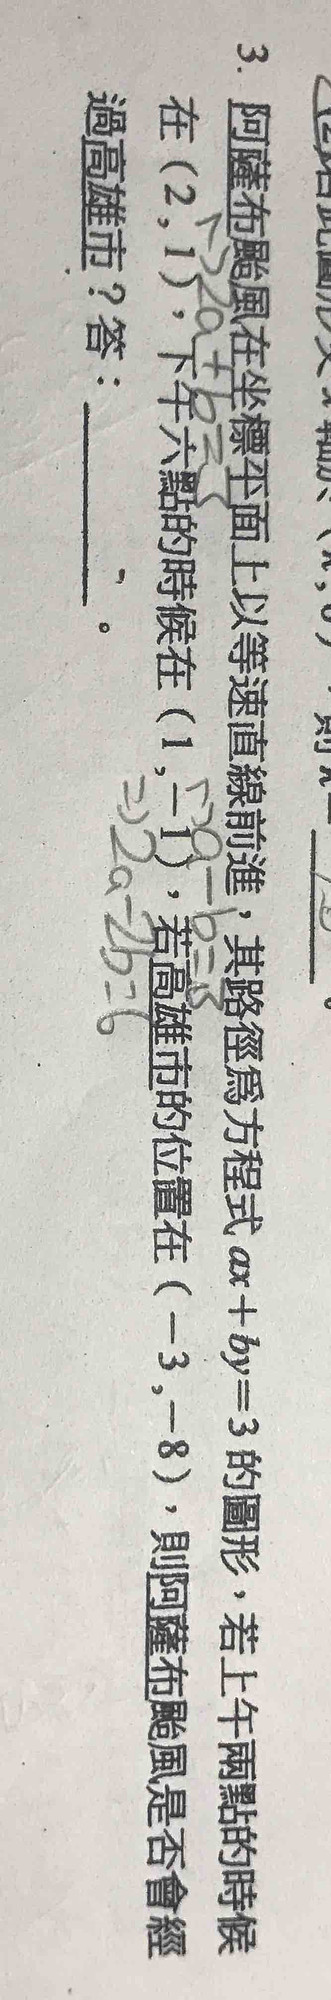 3. 阿薩布颱風在坐標平面上以等速直線前進，其路徑為方程式 ax＋by=3 的圖形，若上午兩點的時候
在（2，1），下午六點的時候在（1，－1），若高雄市的位置在（－3，－8），則阿薩布颱風是否會經
過高雄市？答：＿＿＿＿＿。
2a+b=3
a-b=3
⇒2a-2b=6